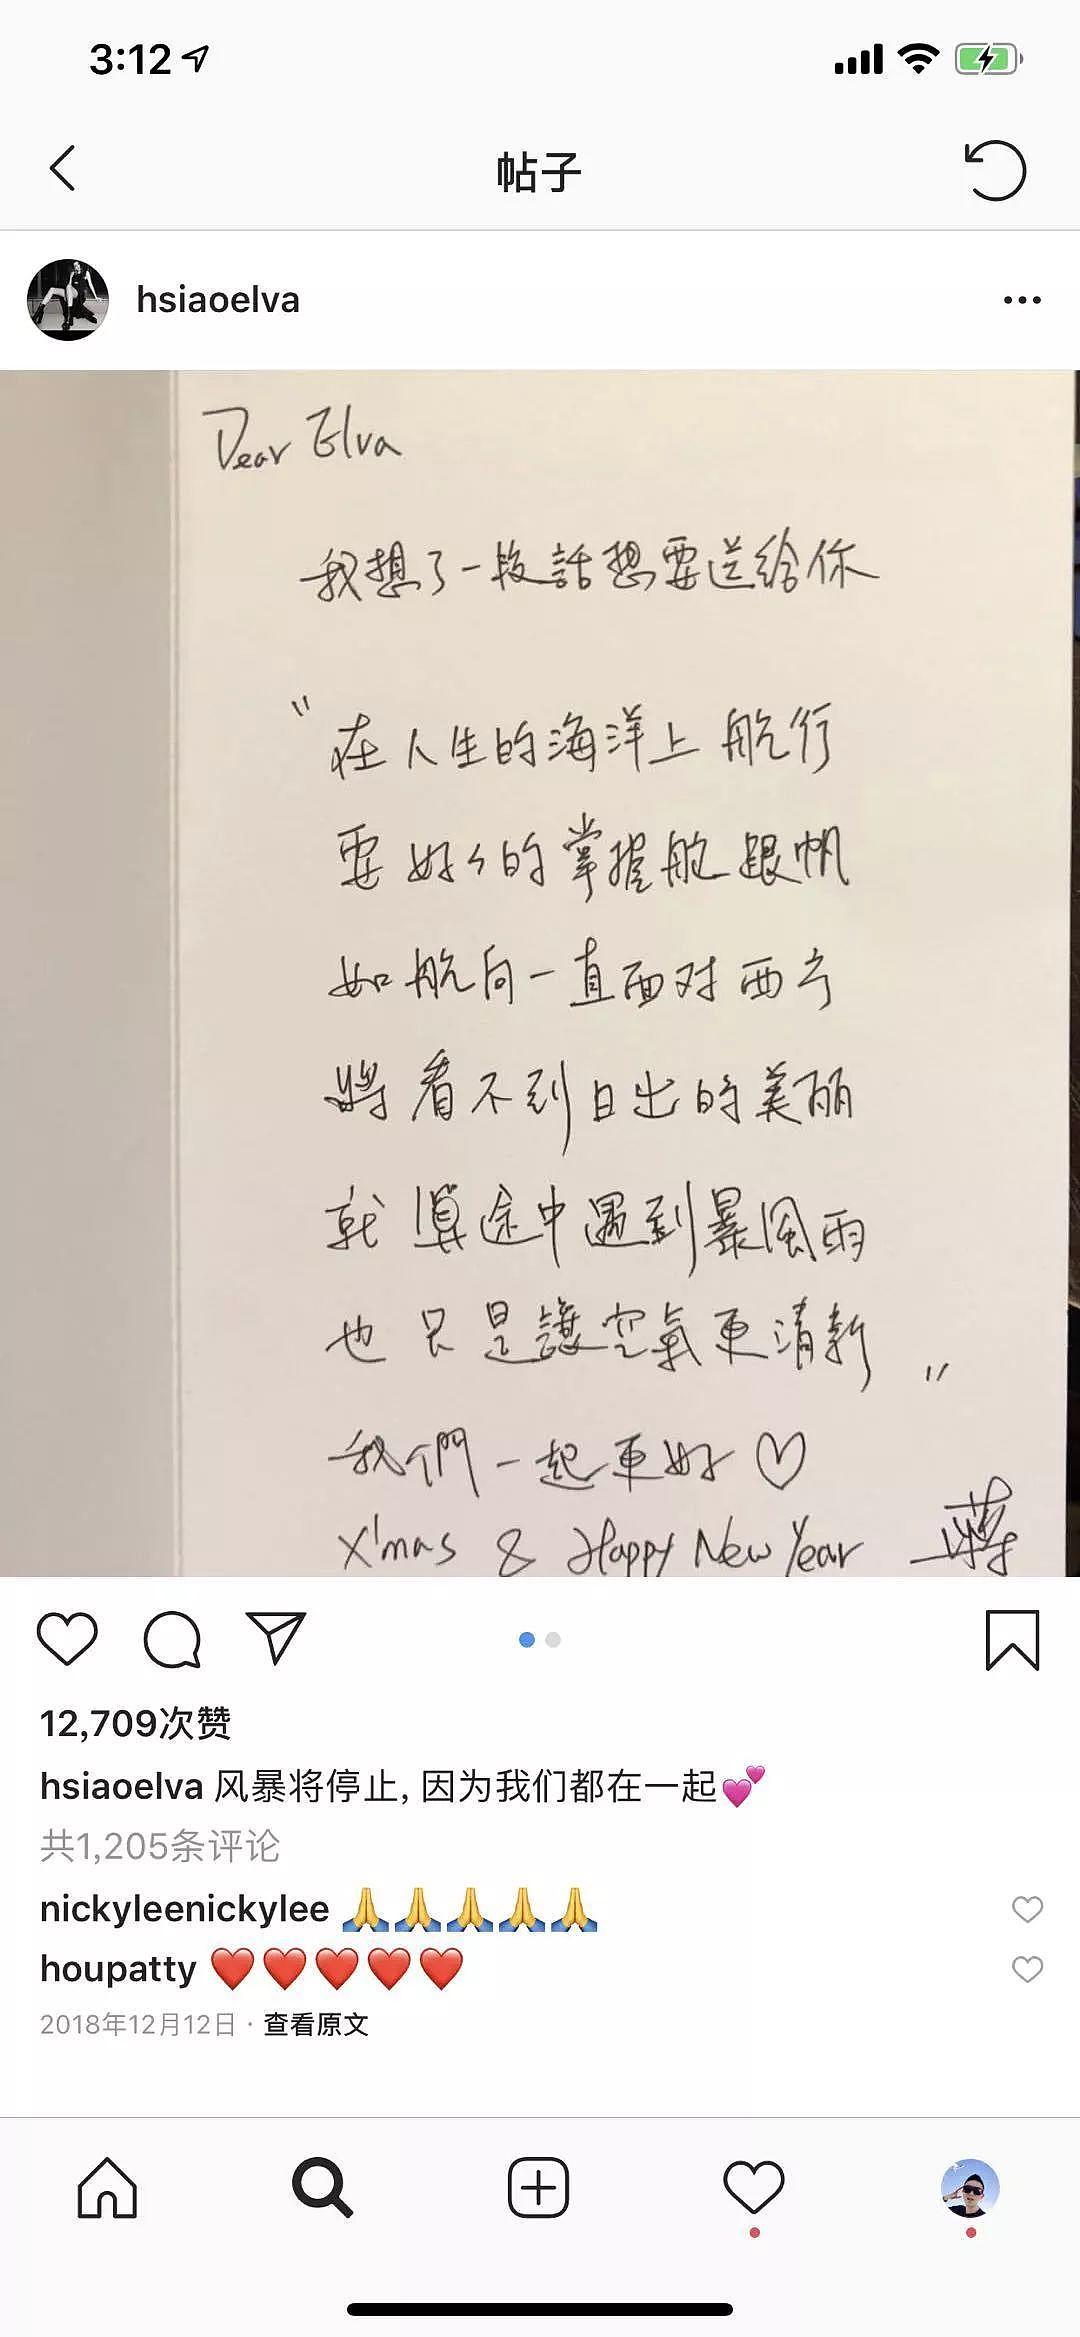 3:12
帖子
hsiaoelva
Dear Elva
我想了一段話想要送給你
"在人生的海洋上 航行
要好々的掌握舵跟帆
如航向一直面对西方
將看不到日出的美丽
就算途中遇到暴風雨
也只是讓空氣更清新"
我們一起更好♡
X'mas & Happy New Year 蔣
12,709次赞
hsiaoelva 风暴将停止, 因为我们都在一起💕
共1,205条评论
nickyleenickylee 🙏🙏🙏🙏🙏
houpatty ❤️❤️❤️❤️❤️
2018年12月12日 · 查看原文